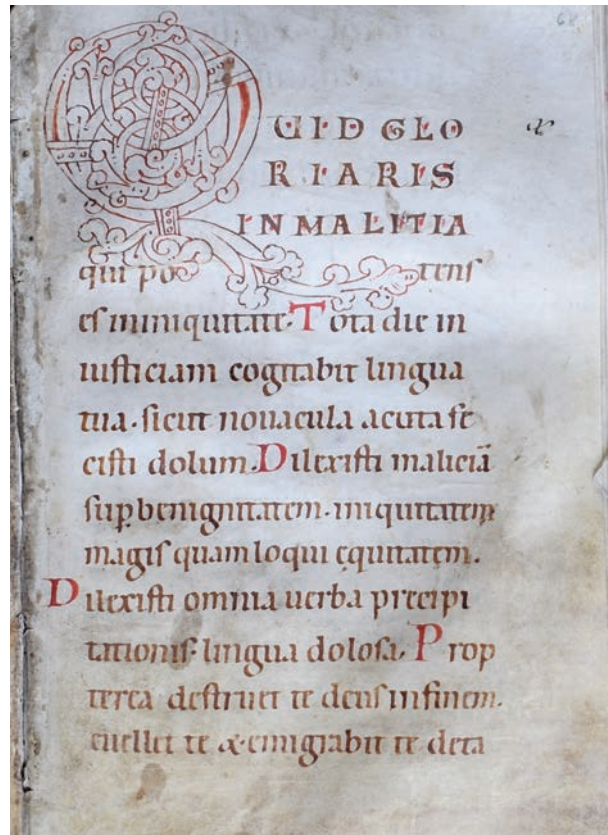 68
QUID GLO
&
RIARIS
IN MALITIA
qui potens
es in iniquitate. Tota die in
iusticiam cogitabit lingua
tua. sicut nouacula acuta fe
cisti dolum. Dilexisti maliciā
sup̱ benignitatem. iniquitatem
magis quam loqui ęquitatem.
Dilexisti omnia uerba precipi
tationis lingua dolosa. Prop
terea destruet te deus in finem.
euellet te & emigrabit te de ta